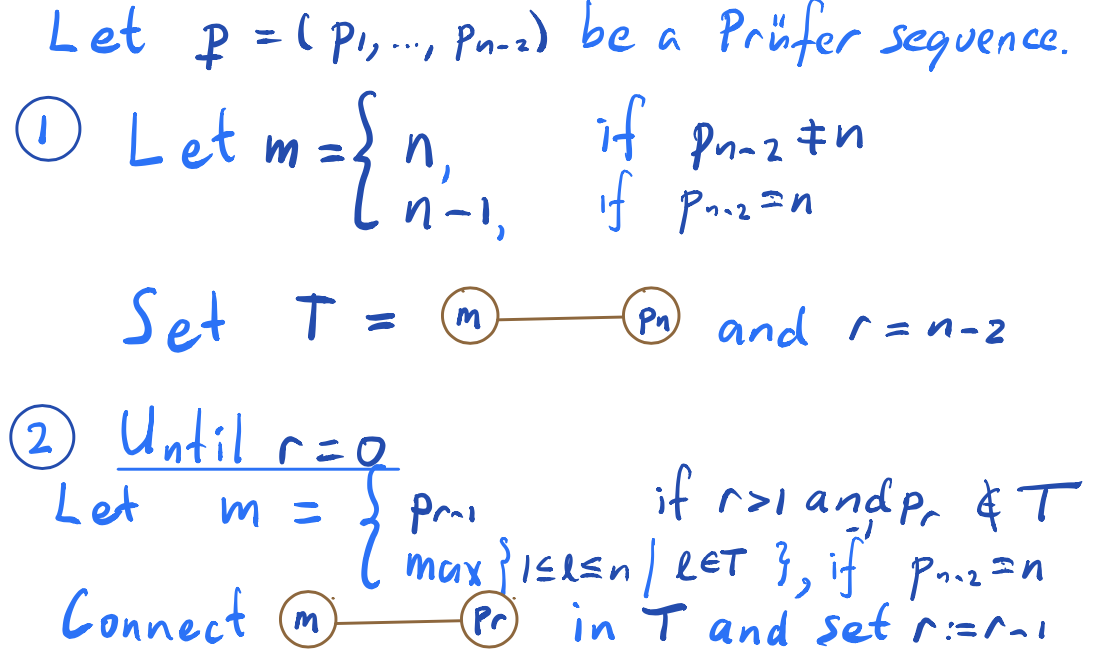 Let p = (p₁, ..., pₙ₋₂) be a Prüfer sequence.
① Let m = { n, if pₙ₋₂ ≠ n
n-1, if pₙ₋₂ = n
Set T = m — pₙ and r = n-2
② Until r = 0
Let m = { pᵣ₋₁ if r>1 and pᵣ₋₁ ∉ T
max {1≤l≤n | l∈T}, if pₙ₋₂ = n
Connect m — pᵣ in T and set r := r-1